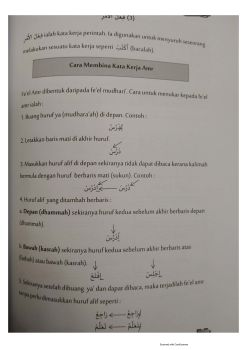 (3) فِعْلُ الأَمْرِ
فِعْلُ الأَمْرِ ialah kata kerja perintah. Ia digunakan untuk menyuruh seseorang
melakukan sesuatu kata kerja seperti (bacalah).
Cara Membina Kata Kerja Amr
Fe'el Amr dibentuk daripada fe'el mudhari'. Cara untuk menukar kepada fe'el
amr ialah :
1. Buang huruf ya (mudhara'ah) di depan. Contoh :
2. Letakkan baris mati di akhir huruf.
3. Masukkan huruf alif di depan sekiranya tidak dapat dibaca kerana kalimah
bermula dengan huruf berbaris mati (sukun). Contoh :
4. Huruf alif yang ditambah berbaris :
a. Depan (dhammah) sekiranya huruf kedua sebelum akhir berbaris depan
(dhammah).
b. Bawah (kasrah) sekiranya huruf kedua sebelum akhir berbaris atas
(fathah) atau bawah (kasrah).
5. Sekiranya setelah dibuang ya' dan dapat dibaca, maka terjadilah fe'el amr
tanpa perlu dimasukkan huruf alif seperti :
Scanned with CamScanner